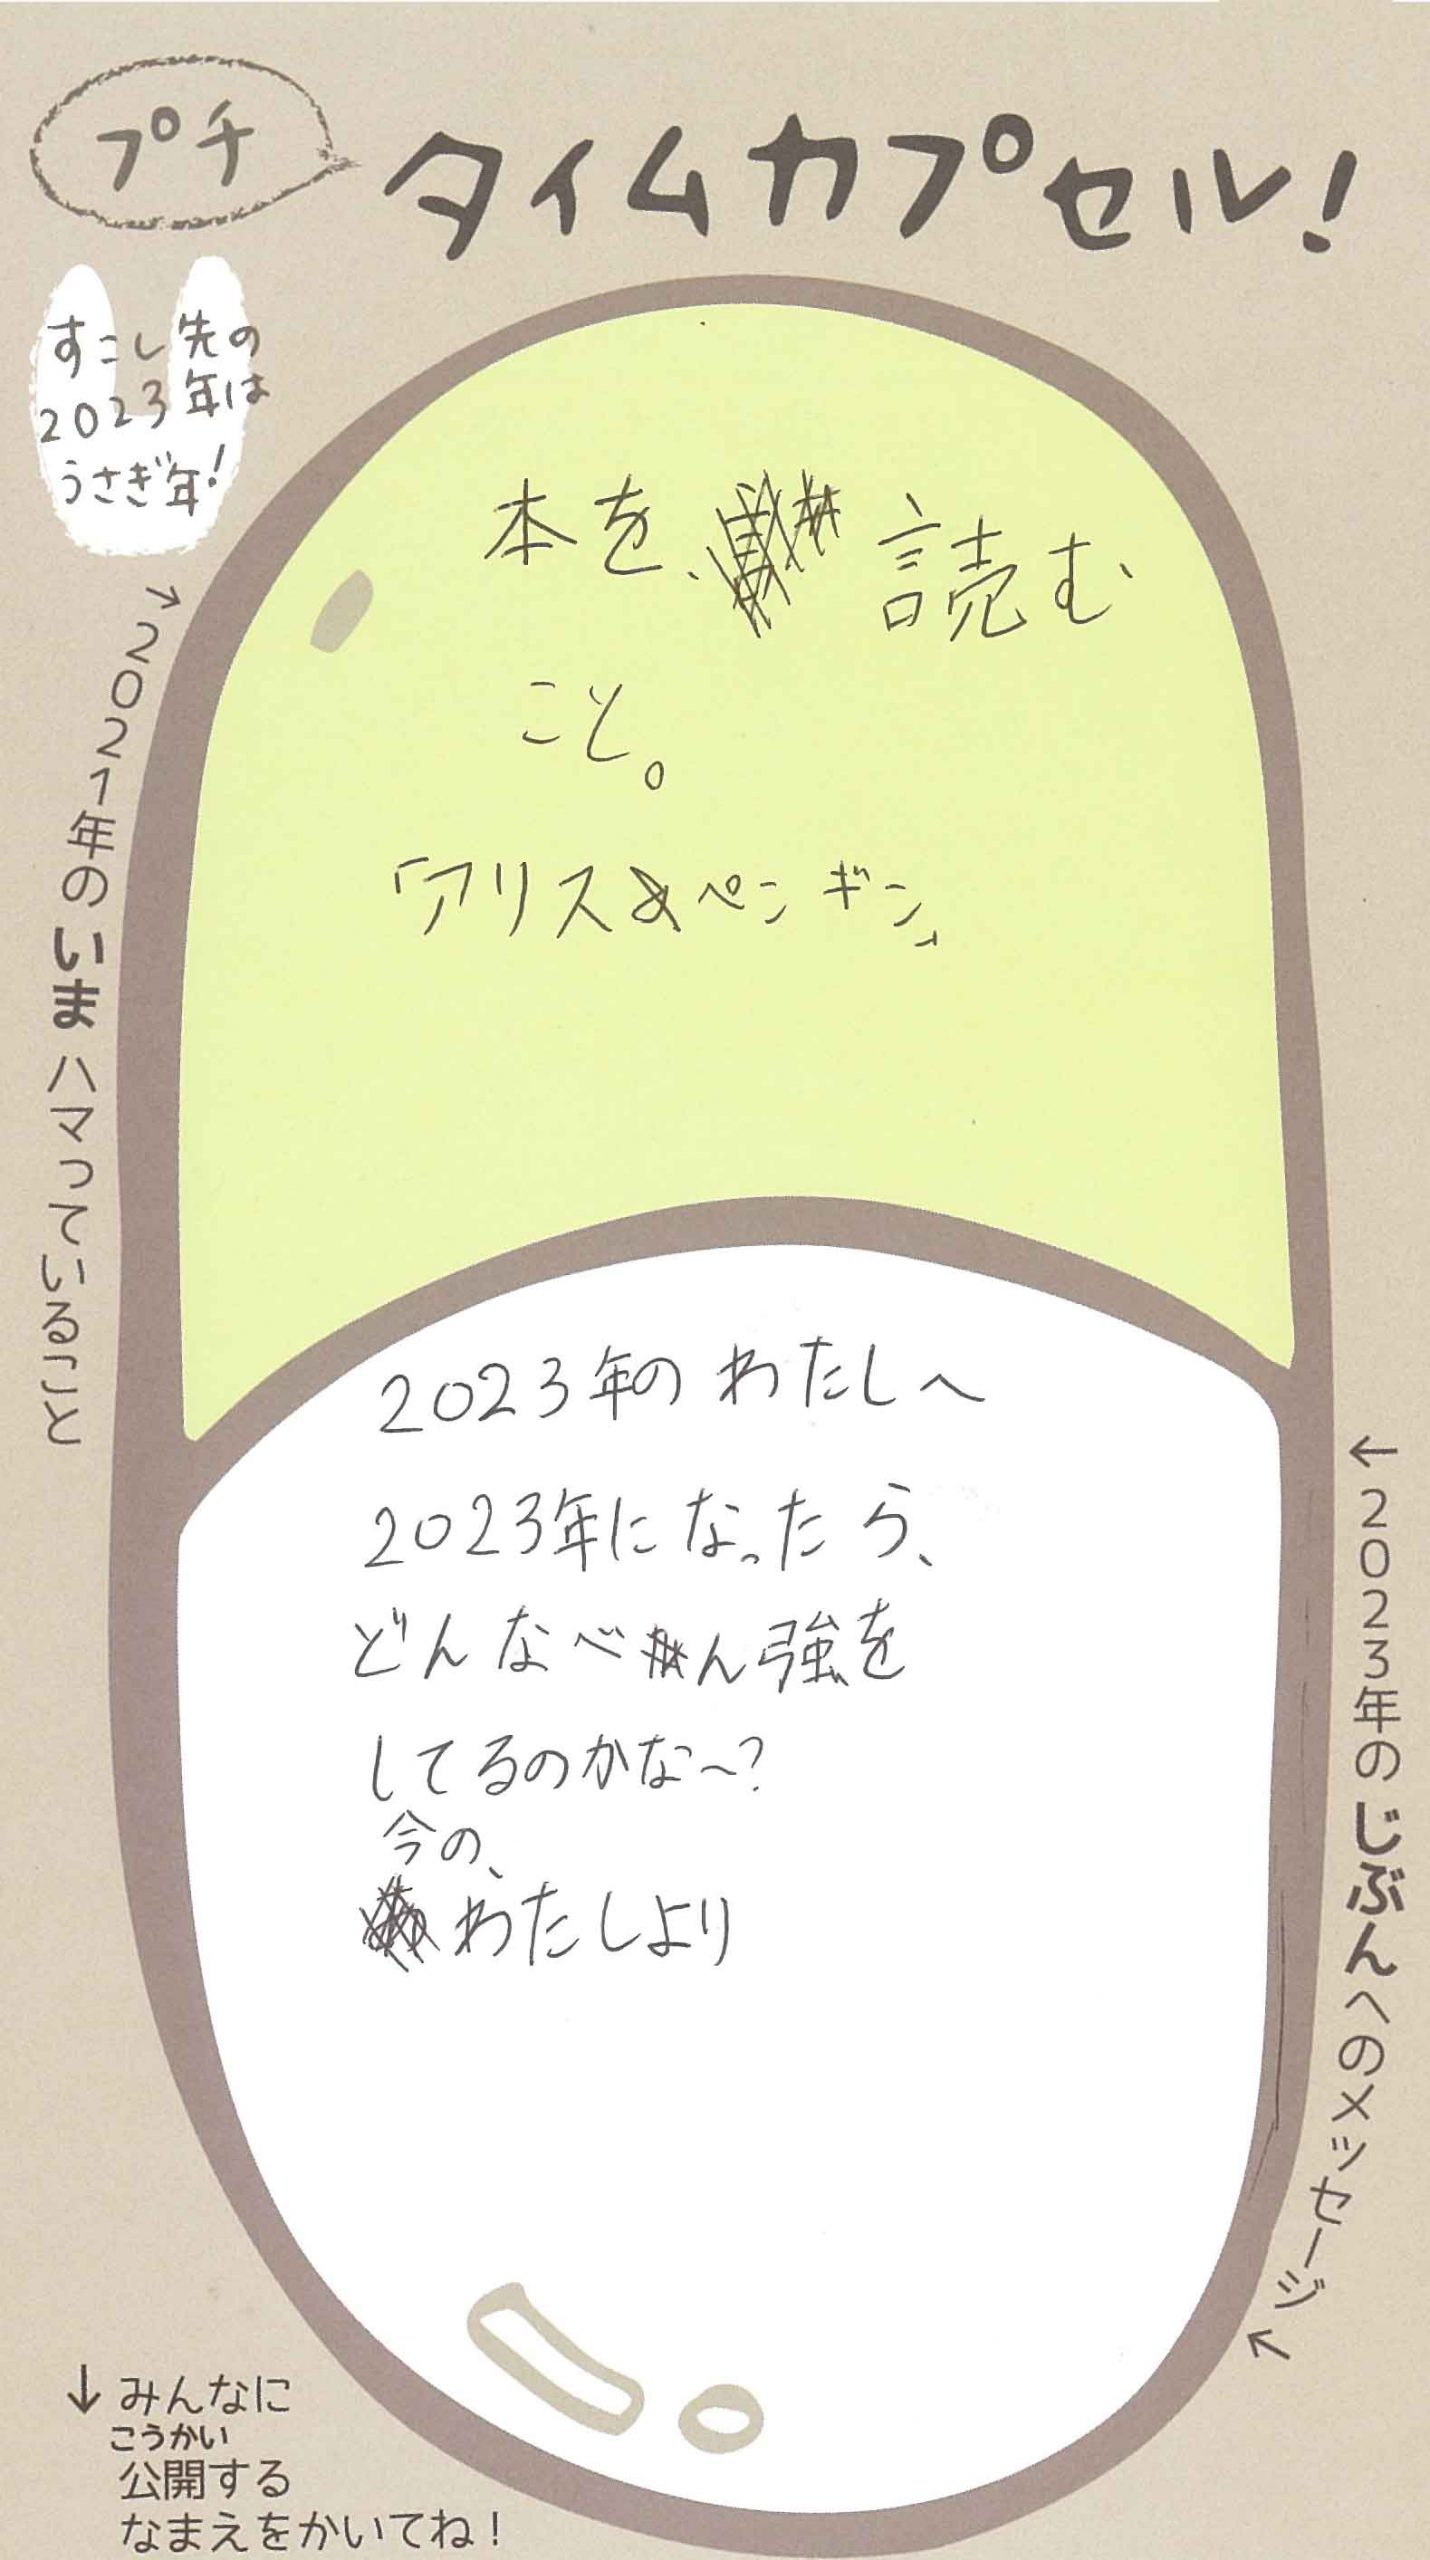 プチ
タイムカプセル!
すこし先の
2023年は
うさぎ年!
→2021年のいまハマっていること
本を、読む
こと。
「アリス&ペンギン」
2023年のわたしへ
2023年になったら、
どんなべん強を
してるのかな〜?
今の、
わたしより
←2023年のじぶんへのメッセージ
↓みんなに
こうかい
公開する
なまえをかいてね!